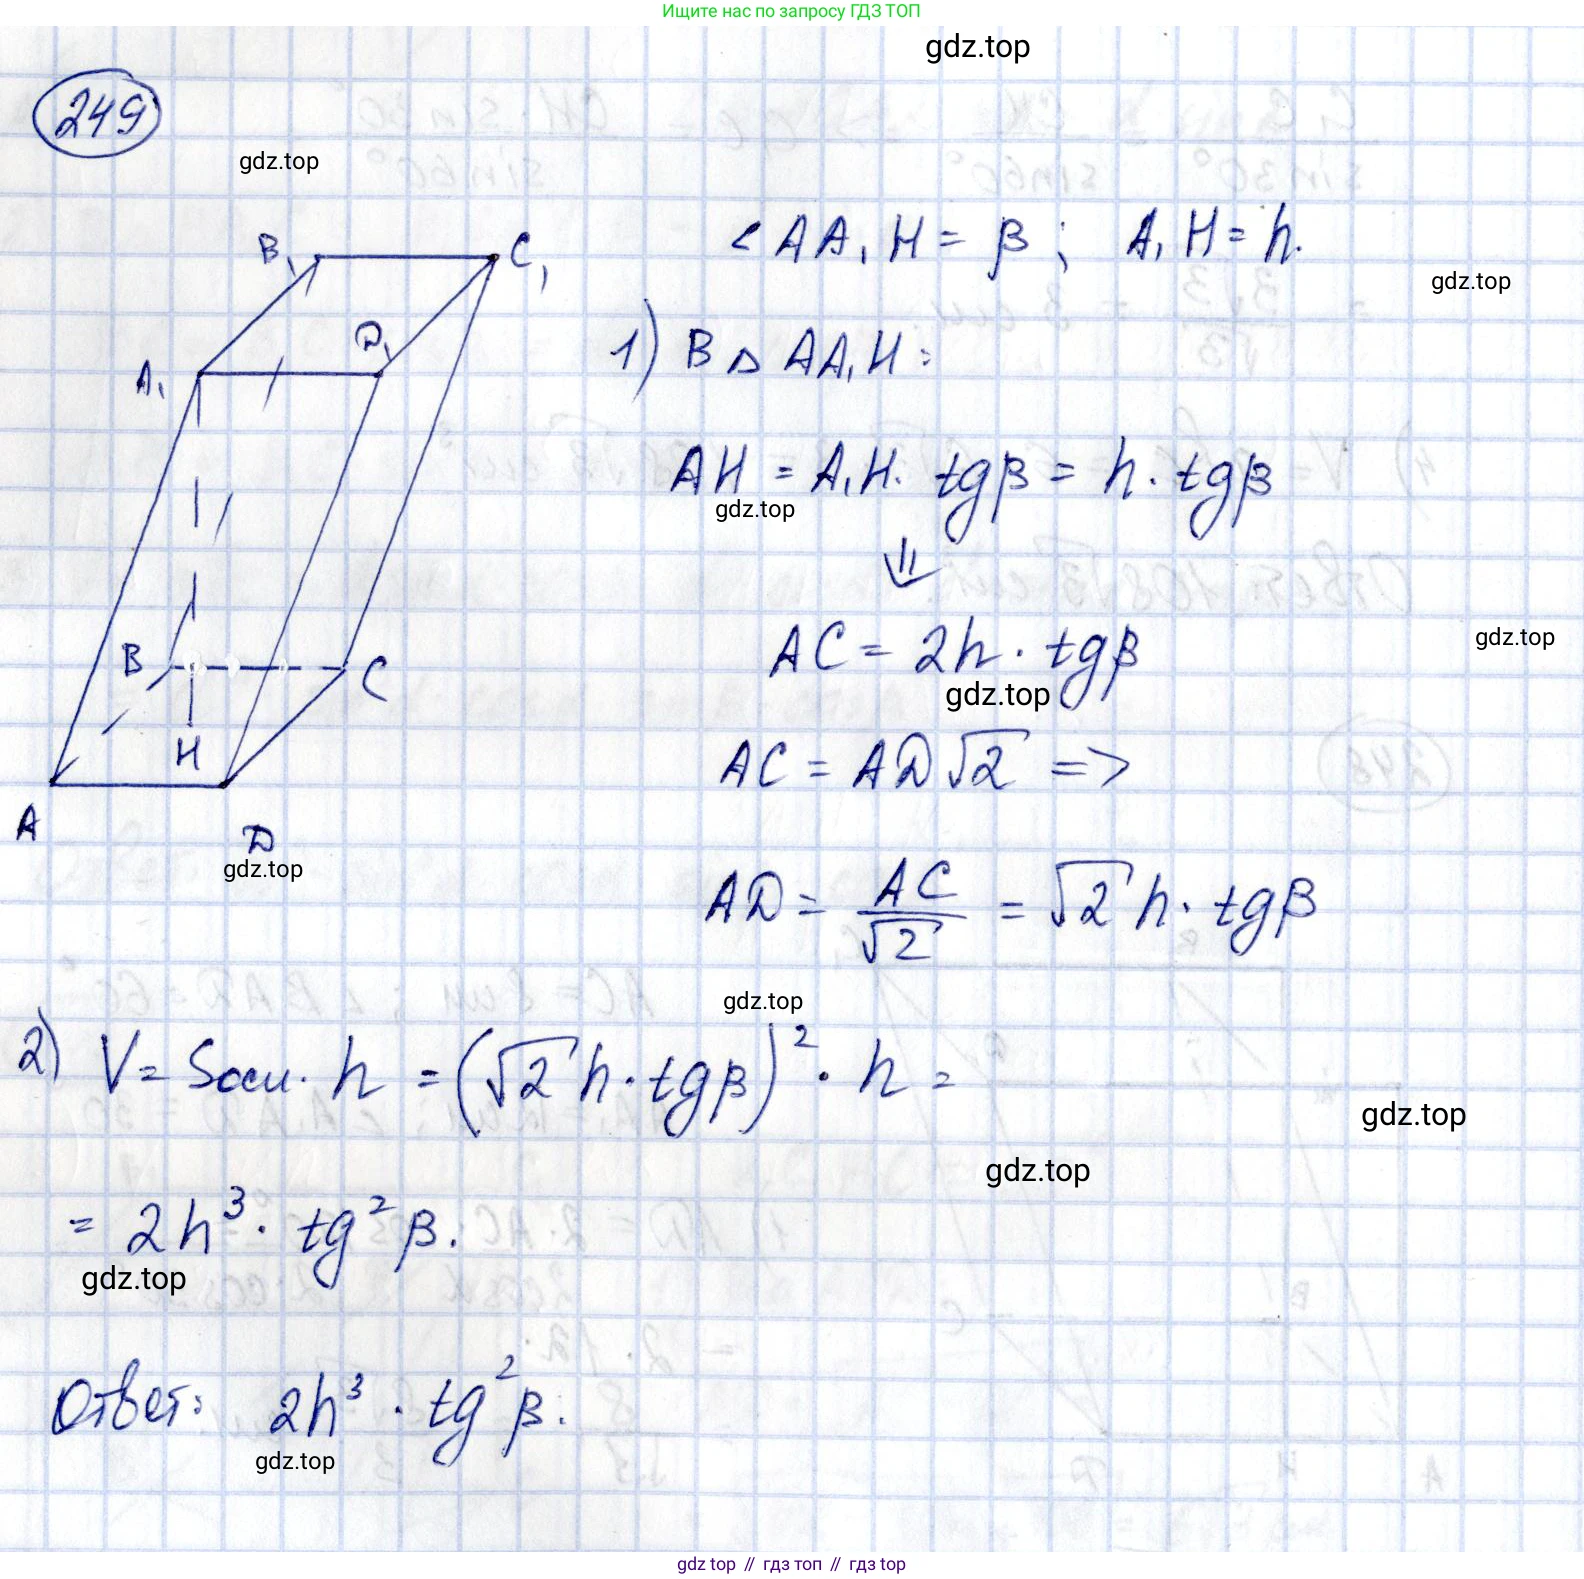 Ищите нас по запросу ГДЗ ТОП
gdz.top
249
gdz.top
∠AA₁H = β; A₁H = h.
gdz.top
B₁ C₁
D₁
A₁
1) В △ AA₁H:
AH = A₁H · tgβ = h · tgβ
gdz.top
⇓
B C
AC = 2h · tgβ
gdz.top
gdz.top
H
AC = AD√2 =>
A D
gdz.top
AD = AC/√2 = √2 h · tgβ
gdz.top
2) V = Sосн · h = (√2 h · tgβ)² · h =
gdz.top
gdz.top
= 2h³ · tg²β.
gdz.top
Ответ: 2h³ · tg²β.
gdz.top
gdz.top // гдз топ // гдз top